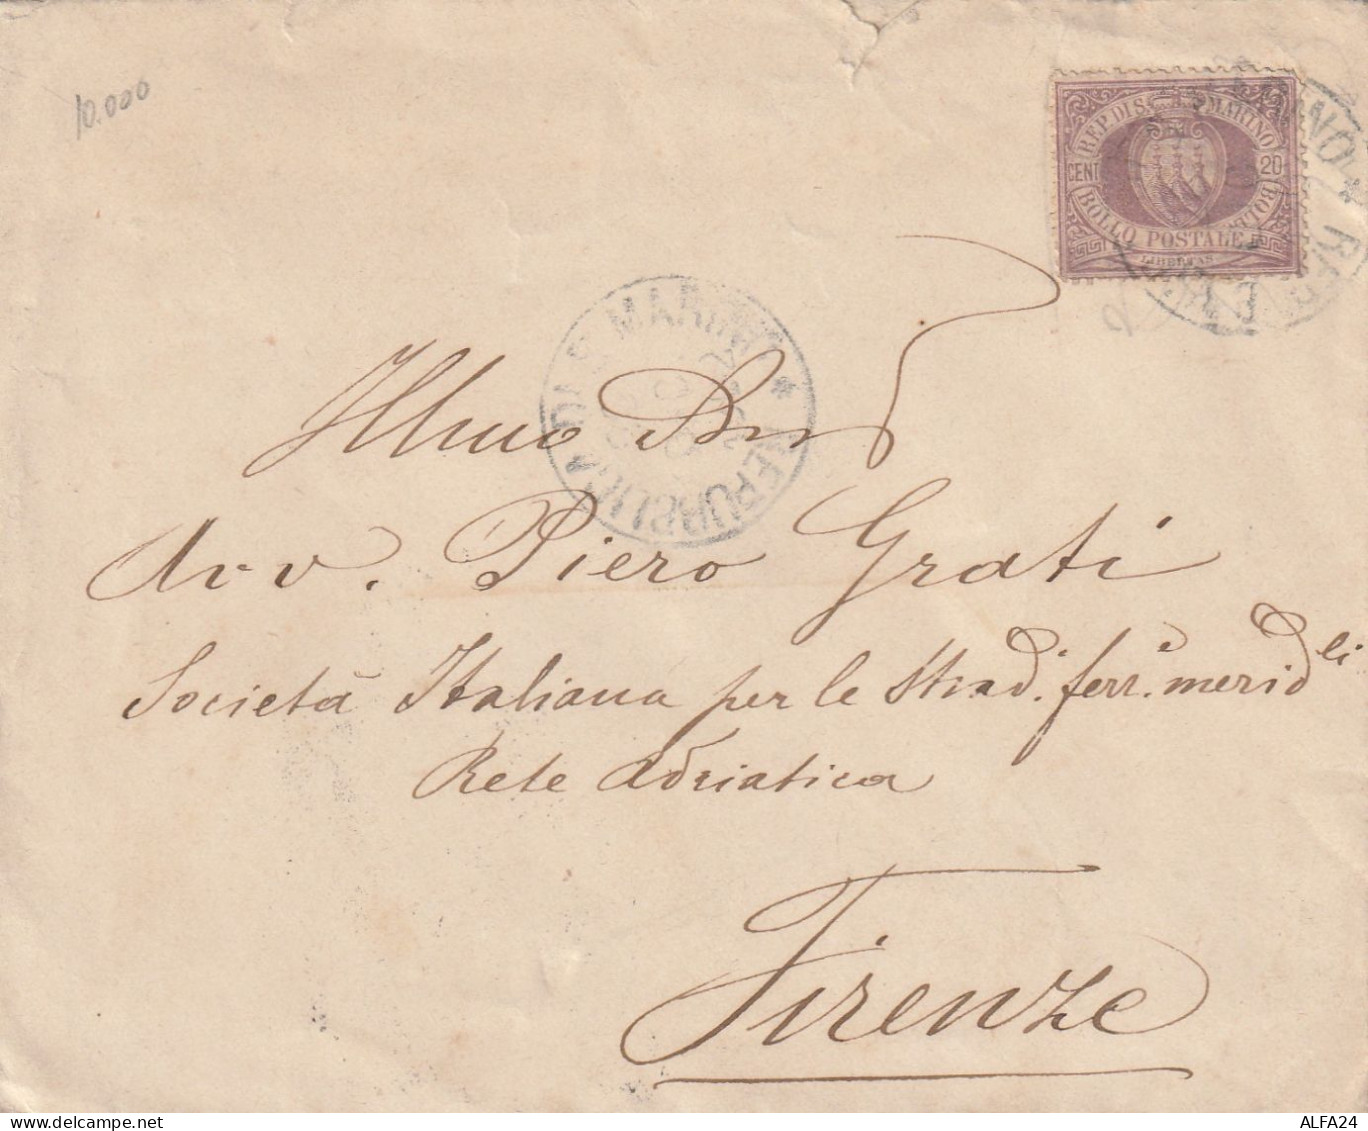 10.000
REP. DI S. MARINO
CENT 20
BOLLO POSTALE
LIBERTAS
REPUBBLICA DI S. MARINO *
Illmo Sig
Avv. Piero Grati
Società Italiana per le Strad. ferr.e merid.li
Rete Adriatica
Firenze
ALFA24